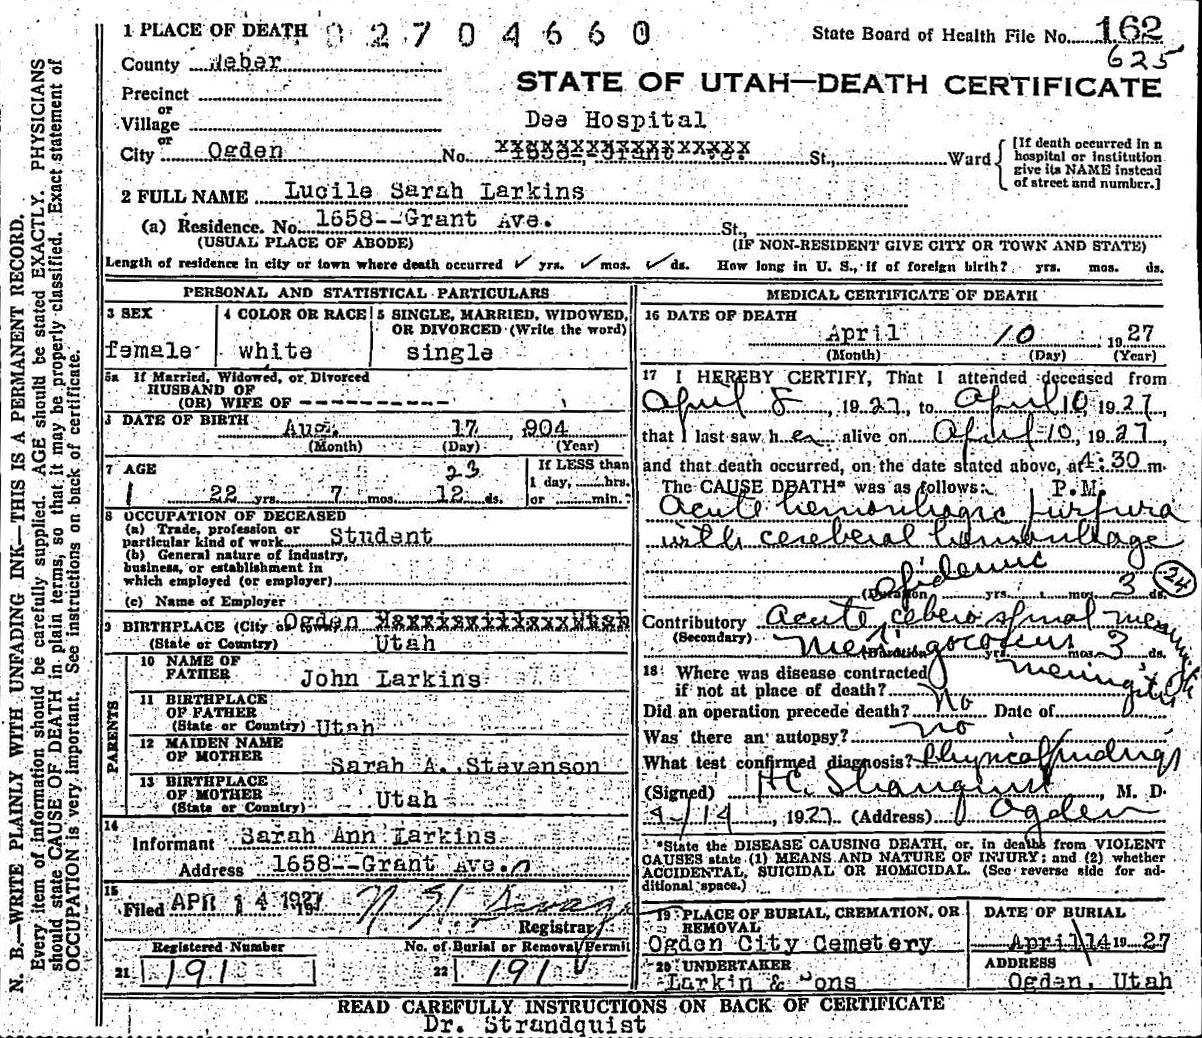 1 PLACE OF DEATH 02704660
State Board of Health File No. 162
625
County Weber
STATE OF UTAH—DEATH CERTIFICATE
Precinct
or
Village
Dee Hospital
or
City Ogden No. XXXXXXXXXXXXXXXXXX St., Ward
[If death occurred in a
hospital or institution
give its NAME instead
of street and number.]
2 FULL NAME Lucile Sarah Larkins
(a) Residence. No. 1658--Grant Ave. St.,
(USUAL PLACE OF ABODE) (IF NON-RESIDENT GIVE CITY OR TOWN AND STATE)
Length of residence in city or town where death occurred ✓ yrs. ✓ mos. ✓ ds. How long in U. S., if of foreign birth? yrs. mos. ds.
PERSONAL AND STATISTICAL PARTICULARS
3 SEX
female
4 COLOR OR RACE
white
5 SINGLE, MARRIED, WIDOWED,
OR DIVORCED (Write the word)
single
5a If Married, Widowed, or Divorced
HUSBAND OF
(OR) WIFE OF ----------
DATE OF BIRTH Aug. 17 904
(Month) (Day) (Year)
7 AGE
23
22 yrs. 7 mos. 12 ds.
If LESS than
1 day, hrs.
or min.
8 OCCUPATION OF DECEASED
(a) Trade, profession or
particular kind of work Student
(b) General nature of industry,
business, or establishment in
which employed (or employer)
(c) Name of Employer
9 BIRTHPLACE (City or town) Ogden
(State or Country) Utah
PARENTS
10 NAME OF
FATHER John Larkins
11 BIRTHPLACE
OF FATHER
(State or Country) Utah
12 MAIDEN NAME
OF MOTHER Sarah A. Stevenson
13 BIRTHPLACE
OF MOTHER
(State or Country) Utah
14
Informant Sarah Ann Larkins
Address 1658--Grant Ave.
15
Filed APR 14 1927
Registrar
Registered Number
21 191
No. of Burial or Removal Permit
22 191
MEDICAL CERTIFICATE OF DEATH
16 DATE OF DEATH
April 10 1927
(Month) (Day) (Year)
17 I HEREBY CERTIFY, That I attended deceased from
April 8, 1927, to April 10, 1927,
that I last saw her alive on April 10, 1927,
and that death occurred, on the date stated above, at 4:30 m.
The CAUSE DEATH* was as follows: P.M.
Acute hemorrhagic purpura
with cerebral hemorrhage
epidemic
(Duration yrs. mos. 3 ds. 24
Contributory Acute cebero spinal
(Secondary)
Meningococcus
(Duration yrs. mos. 3 ds.
18 Where was disease contracted
if not at place of death?
meningitis
Did an operation precede death? No Date of
Was there an autopsy? no
What test confirmed diagnosis? Physical findings
(Signed) HC. Stranquist, M. D.
4/14, 1927 (Address) Ogden
*State the DISEASE CAUSING DEATH, or, in deaths from VIOLENT
CAUSES state (1) MEANS AND NATURE OF INJURY; and (2) whether
ACCIDENTAL, SUICIDAL OR HOMICIDAL. (See reverse side for ad-
ditional space.)
19 PLACE OF BURIAL, CREMATION, OR
REMOVAL
Ogden City Cemetery
DATE OF BURIAL
April 14 1927
20 UNDERTAKER
Larkin & Sons
ADDRESS
Ogden, Utah
READ CAREFULLY INSTRUCTIONS ON BACK OF CERTIFICATE
Dr. Strandquist
N. B.—WRITE PLAINLY WITH UNFADING INK—THIS IS A PERMANENT RECORD.
Every item of information should be carefully supplied. AGE should be stated EXACTLY. PHYSICIANS
should state CAUSE OF DEATH in plain terms, so that it may be properly classified. Exact statement of
OCCUPATION is very important. See instructions on back of certificate.